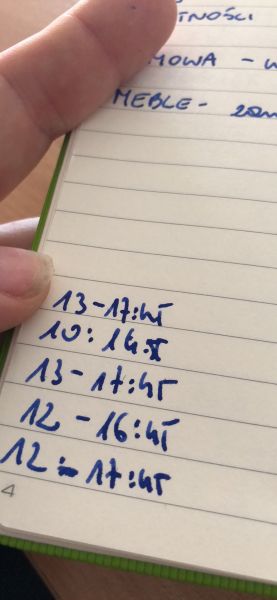 TNOŚCI
MOWA - w
MEBLE -
13-17:45
10:14:
13-17:45
12-16:45
12-17:45
4